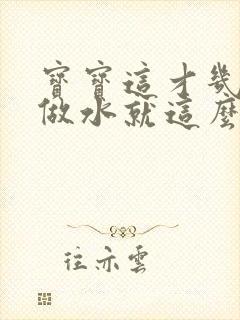 寶寶這才幾
做水就這麼
往亦雲